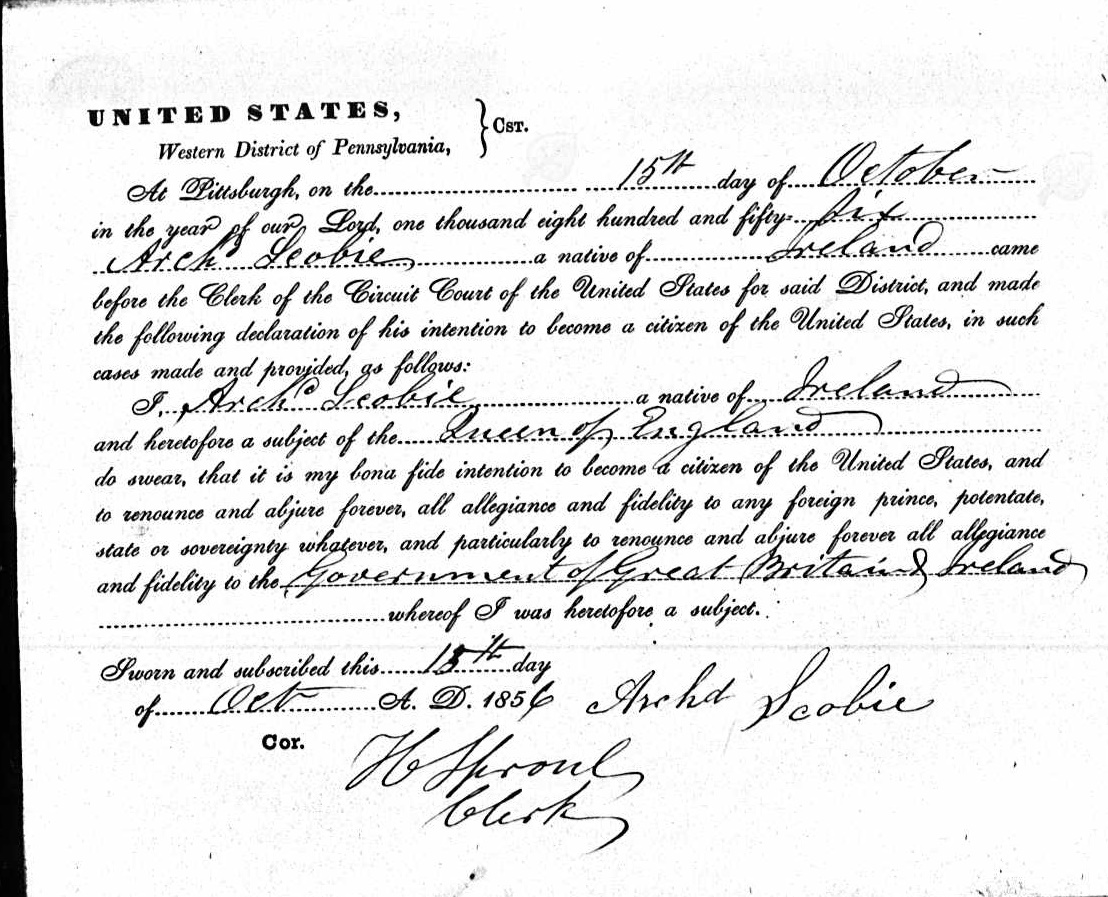 UNITED STATES, } Cst.
Western District of Pennsylvania,
At Pittsburgh, on the 15th day of October
in the year of our Lord, one thousand eight hundred and fifty- Six
Archd Scobie a native of Ireland came
before the Clerk of the Circuit Court of the United States for said District, and made
the following declaration of his intention to become a citizen of the United States, in such
cases made and provided, as follows:
I, Archd Scobie a native of Ireland
and heretofore a subject of the Queen of England
do swear, that it is my bona fide intention to become a citizen of the United States, and
to renounce and abjure forever, all allegiance and fidelity to any foreign prince, potentate,
state or sovereignty whatever, and particularly to renounce and abjure forever all allegiance
and fidelity to the Government of Great Britain & Ireland
whereof I was heretofore a subject.
Sworn and subscribed this 15th day
of Oct A. D. 1856 Archd Scobie
Cor.
H Sproul
Clerk